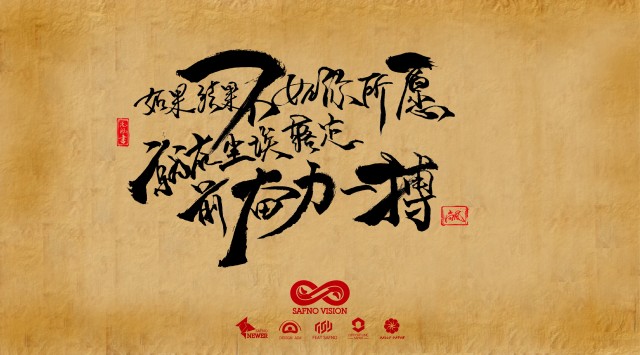 如果结果不如你所愿
就在尘埃落定
前奋力一搏
SAPNO VISION
NEWEB
FEAT SAPNO